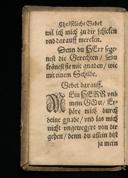 Christliche Gebet
wil ich mich zu dir schicken
und darauff mercken.
Denn du HErr seg-
nest die Gerechten / Du
krönest sie mit gnaden / wie
mit einem Schilde.
Gebet darauff.
MEin HERR und
mein GOtt / Er-
höre mich durch
deine gnade / und las mich
nicht ungewegret von dir
gehen / denn du allein bist
ja mein